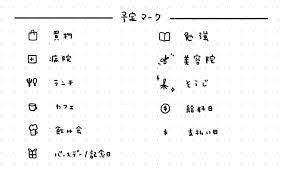 予定マーク
買物
病院
ランチ
カフェ
飲み会
バースデー/記念日
勉強
美容院
そうじ
給料日
支払い日